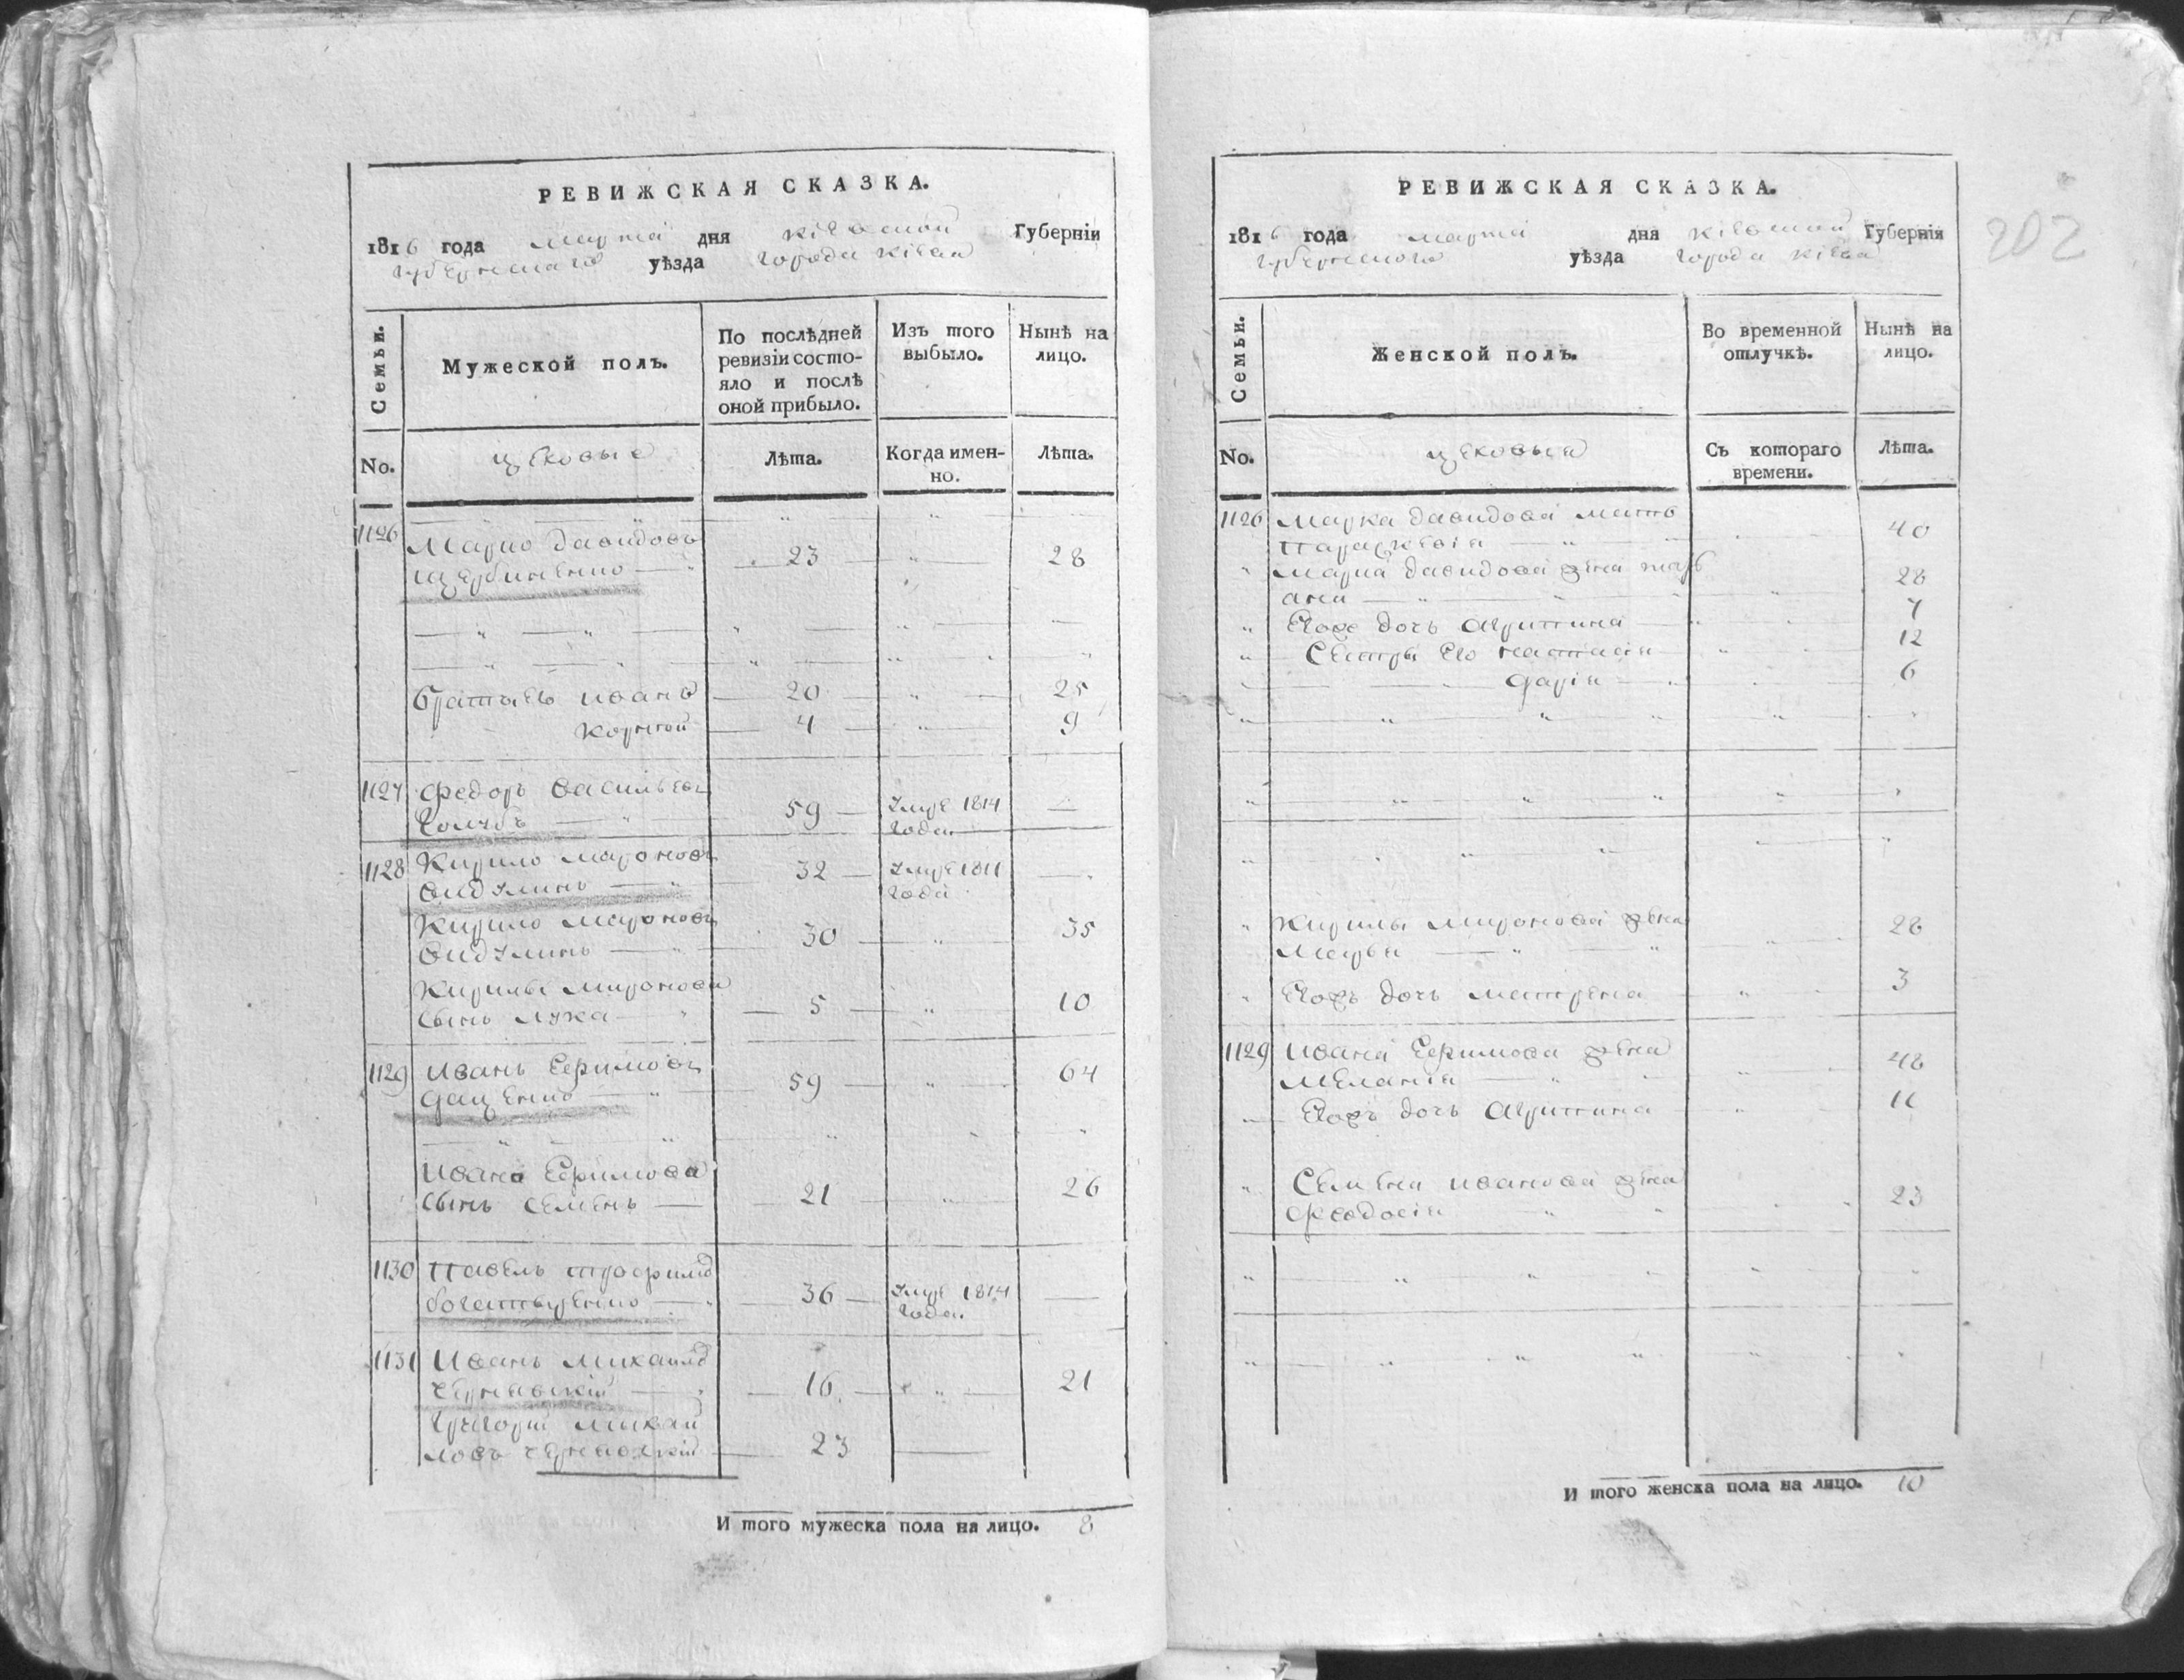 РЕВИЖСКАЯ СКАЗКА.
1816 года марта дня кіевской Губерніи
губернскаго уѣзда города кіева
Семьи.
Мужеской полъ.
По послѣдней ревизіи состо-
яло и послѣ
оной прибыло.
Изъ того выбыло.
Нынѣ на лицо.
No.
цеховые
Лѣта.
Когда имен-
но.
Лѣта.
1126 Марко давидовъ
щербиненко 23 28
братья Его иванъ 20 25
корней 4 9
1127 федоръ васильевъ
голубъ 59 Умре 1814 года
1128 Кирило мироновъ
32 Умре 1811 года
Кирило мироновъ
30 35
Кирилы миронова
сынъ лука 5 10
1129 иванъ Ефимовъ
даценко 59 64
ивана Ефимова
сынъ семенъ 21 26
1130 павелъ трофимо
36 Умре 1814 года.
1131 Иванъ михаило
чернявскій 16 21
григорій михай
ловъ чернявскій 23
И того мужеска пола на лицо. 8
РЕВИЖСКАЯ СКАЗКА.
1816 года марта дня кіевской Губерніи
губернского уѣзда города кіева
Семьи.
Женской полъ.
Во временной отлучкѣ.
Нынѣ на лицо.
No.
цеховыя
Съ котораго времени.
Лѣта.
1126 марка давидова мать
параскевія 40
марка давидова жена
28
Егожъ дочь агрипина 7
Сестры Его настасія 12
дарія 6
Кирилы миронова жена
марья 28
Егожъ дочь матрена 3
1129 ивана Ефимова жена
меланія 48
Егожъ дочь агрипина 11
Семена иванова жена
феодосія 23
И того женска пола на лицо. 10
202